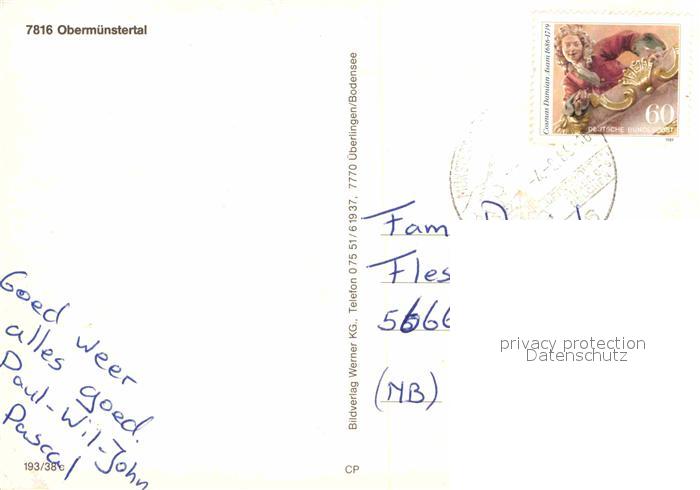 7816 Obermünstertal
Cosmas Damian Asam 1686-1739
60
DEUTSCHE BUNDESPOST
Bildverlag Werner KG., Telefon 0 75 51/6 19 37, 7770 Überlingen/Bodensee
Fam
Fles
5666
(NB)
privacy protection
Datenschutz
Goed weer
alles goed.
Paul-Wil-John
Pascal
193/38 c
CP